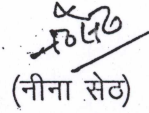 (नीना सेठ)